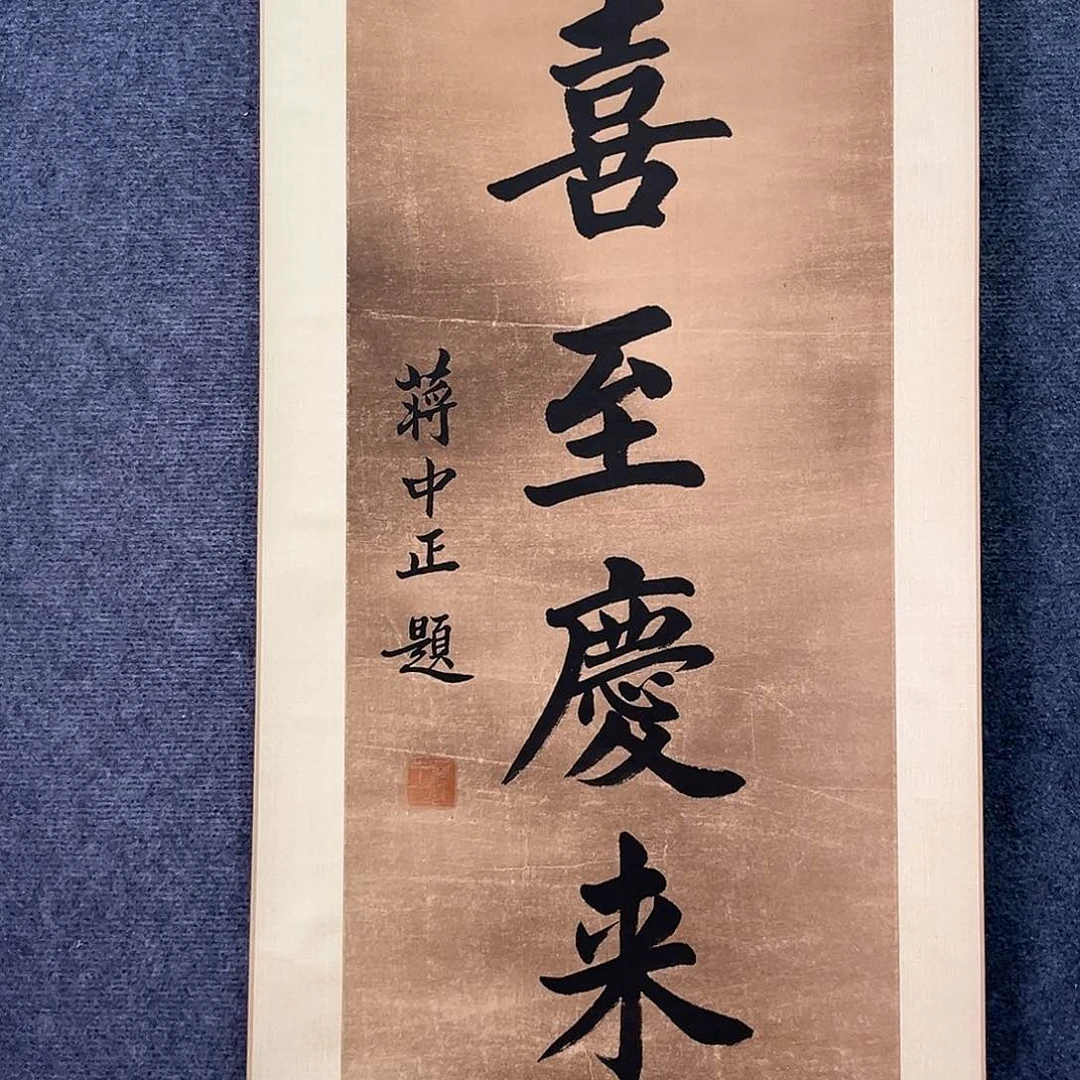 喜至慶来
蔣中正題